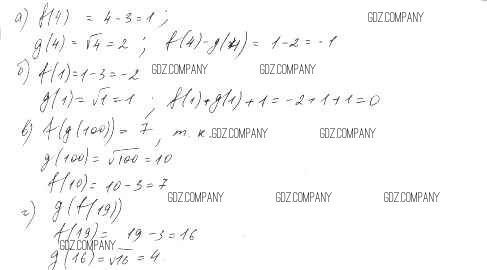 а) f(4) = 4-3=1; GDZ.COMPANY
g(4)=√4=2; f(4)-g(4)=1-2=-1
б) f(1)=1-3=-2 GDZ.COMPANY GDZ.COMPANY
g(1)=√1=1; f(1)+g(1)+1=-2+1+1=0
в) f(g(100))=7, т.к. GDZ.COMPANY GDZ.COMPANY
g(100)=√100=10
f(10)=10-3=7
GDZ.COMPANY GDZ.COMPANY GDZ.COMPANY
г) g(f(19))
f(19)= 19-3=16
GDZ.COMPANY
g(16)=√16=4